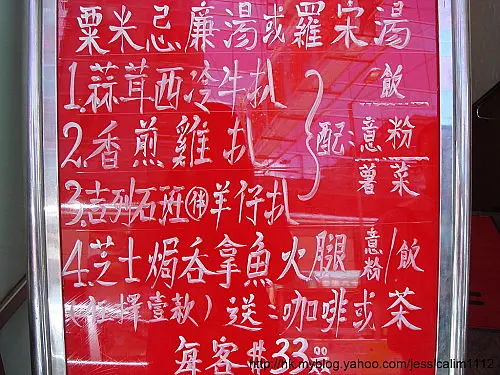 粟米忌廉湯或羅宋湯
1.蒜茸西冷牛扒
2.香煎雞扒
3.吉列石班㕥羊仔扒
配:
飲
意粉
薯菜
4.芝士焗吞拿魚火腿意粉/飲
(任擇壹款)送:咖啡或茶
每客$33.00
http://hk.myblog.yahoo.com/jessicalim1112